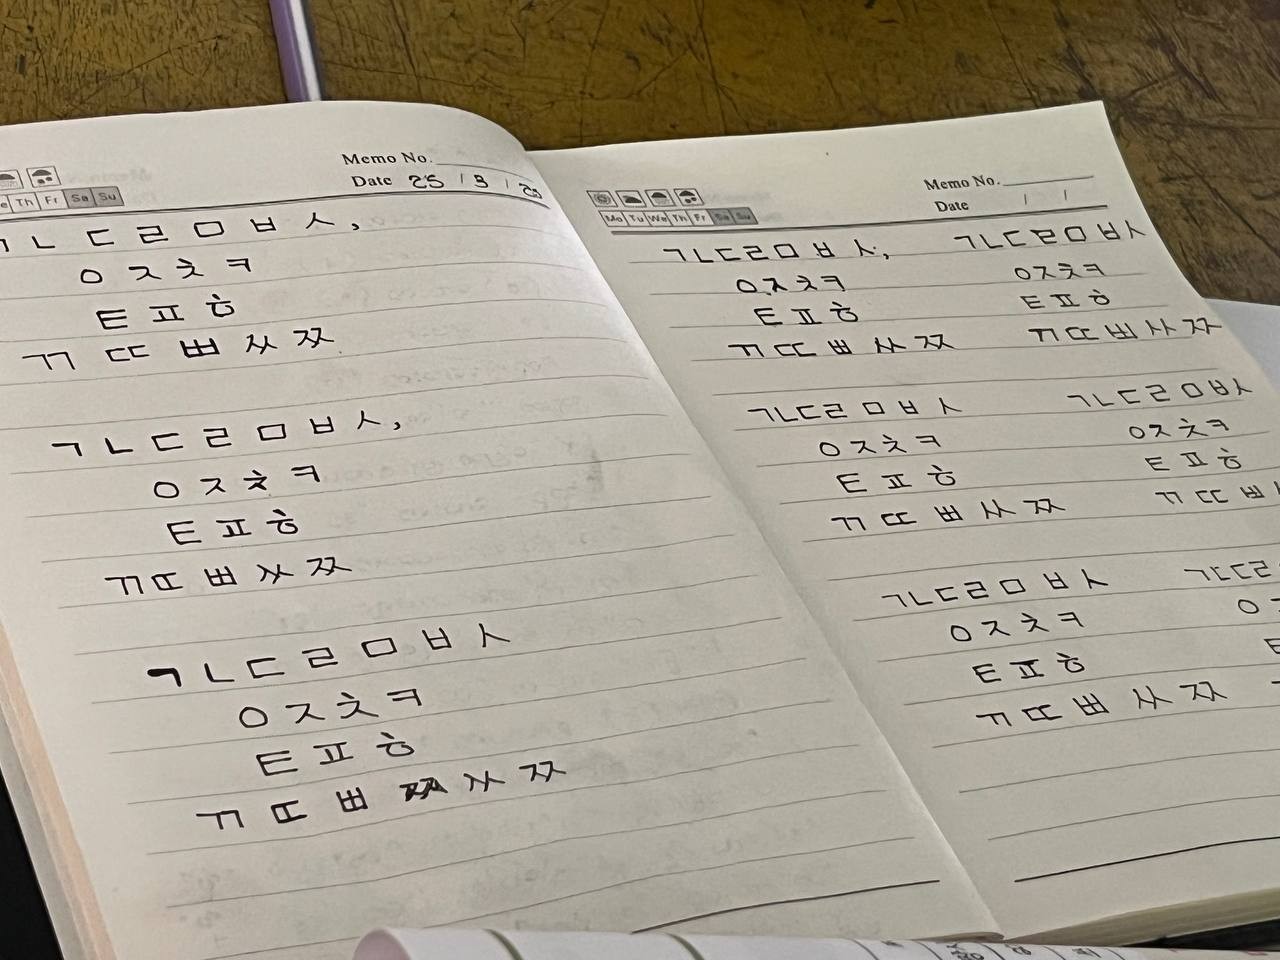 Memo No.
Date 25 / 3 / 25
Th Fr Sa Su
ㄱ ㄴ ㄷ ㄹ ㅁ ㅂ ㅅ,
ㅇ ㅈ ㅊ ㅋ
ㅌ ㅍ ㅎ
ㄲ ㄸ ㅃ ㅆ ㅉ
ㄱ ㄴ ㄷ ㄹ ㅁ ㅂ ㅅ,
ㅇ ㅈ ㅊ ㅋ
ㅌ ㅍ ㅎ
ㄲ ㄸ ㅃ ㅆ ㅉ
ㄱ ㄴ ㄷ ㄹ ㅁ ㅂ ㅅ
ㅇ ㅈ ㅊ ㅋ
ㅌ ㅍ ㅎ
ㄲ ㄸ ㅃ ㅆ ㅉ
Memo No.
Date / /
Mo Tu We Th Fr Sa Su
ㄱㄴㄷㄹㅁ ㅂ ㅅ, ㄱㄴㄷㄹㅁㅂㅅ
ㅇㅈㅊㅋ ㅇㅈㅊㅋ
ㅌ ㅍ ㅎ ㅌ ㅍ ㅎ
ㄲ ㄸ ㅃ ㅆ ㅉ ㄲ ㄸ ㅃ ㅆ ㅉ
ㄱㄴㄷㄹ ㅁ ㅂ ㅅ ㄱㄴㄷㄹㅁㅂㅅ
ㅇ ㅈ ㅊ ㅋ ㅇㅈ ㅊㅋ
ㅌ ㅍ ㅎ ㅌ ㅍ ㅎ
ㄲ ㄸ ㅃ ㅆ ㅉ ㄲ ㄸ ㅃ
ㄱㄴㄷㄹㅁ ㅂ ㅅ ㄱㄴㄷㄹ
ㅇ ㅈ ㅊ ㅋ ㅇ
ㅌ ㅍ ㅎ ㅌ
ㄲ ㄸ ㅃ ㅆ ㅉ